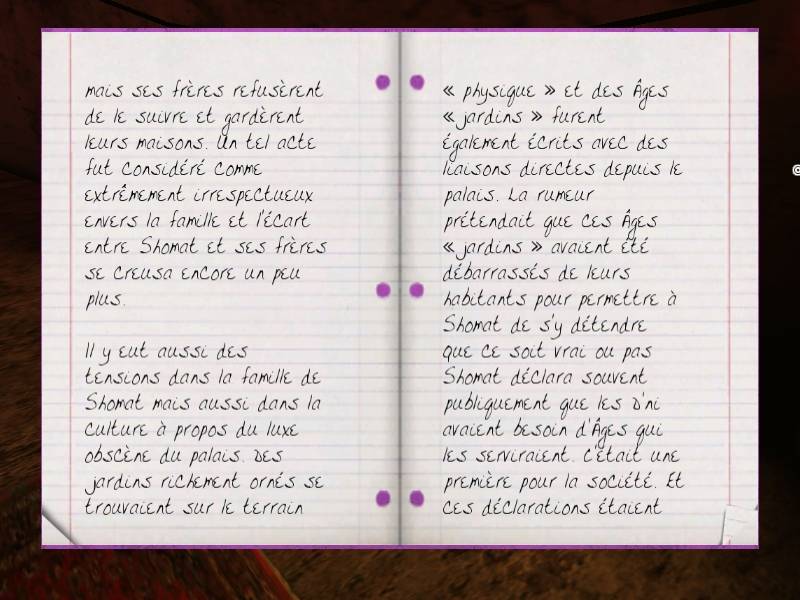 mais ses frères refusèrent
de le suivre et gardèrent
leurs maisons. Un tel acte
fut considéré comme
extrêmement irrespectueux
envers la famille et l'écart
entre Shomat et ses frères
se creusa encore un peu
plus.
Il y eut aussi des
tensions dans la famille de
Shomat mais aussi dans la
culture à propos du luxe
obscène du palais. Des
jardins richement ornés se
trouvaient sur le terrain
« physique » et des Âges
« jardins » furent
également écrits avec des
liaisons directes depuis le
palais. La rumeur
prétendait que ces Âges
« jardins » avaient été
débarrassés de leurs
habitants pour permettre à
Shomat de s'y détendre
que ce soit vrai ou pas
Shomat déclara souvent
publiquement que les D'ni
avaient besoin d'Âges qui
les serviraient. C'était une
première pour la société. Et
ces déclarations étaient